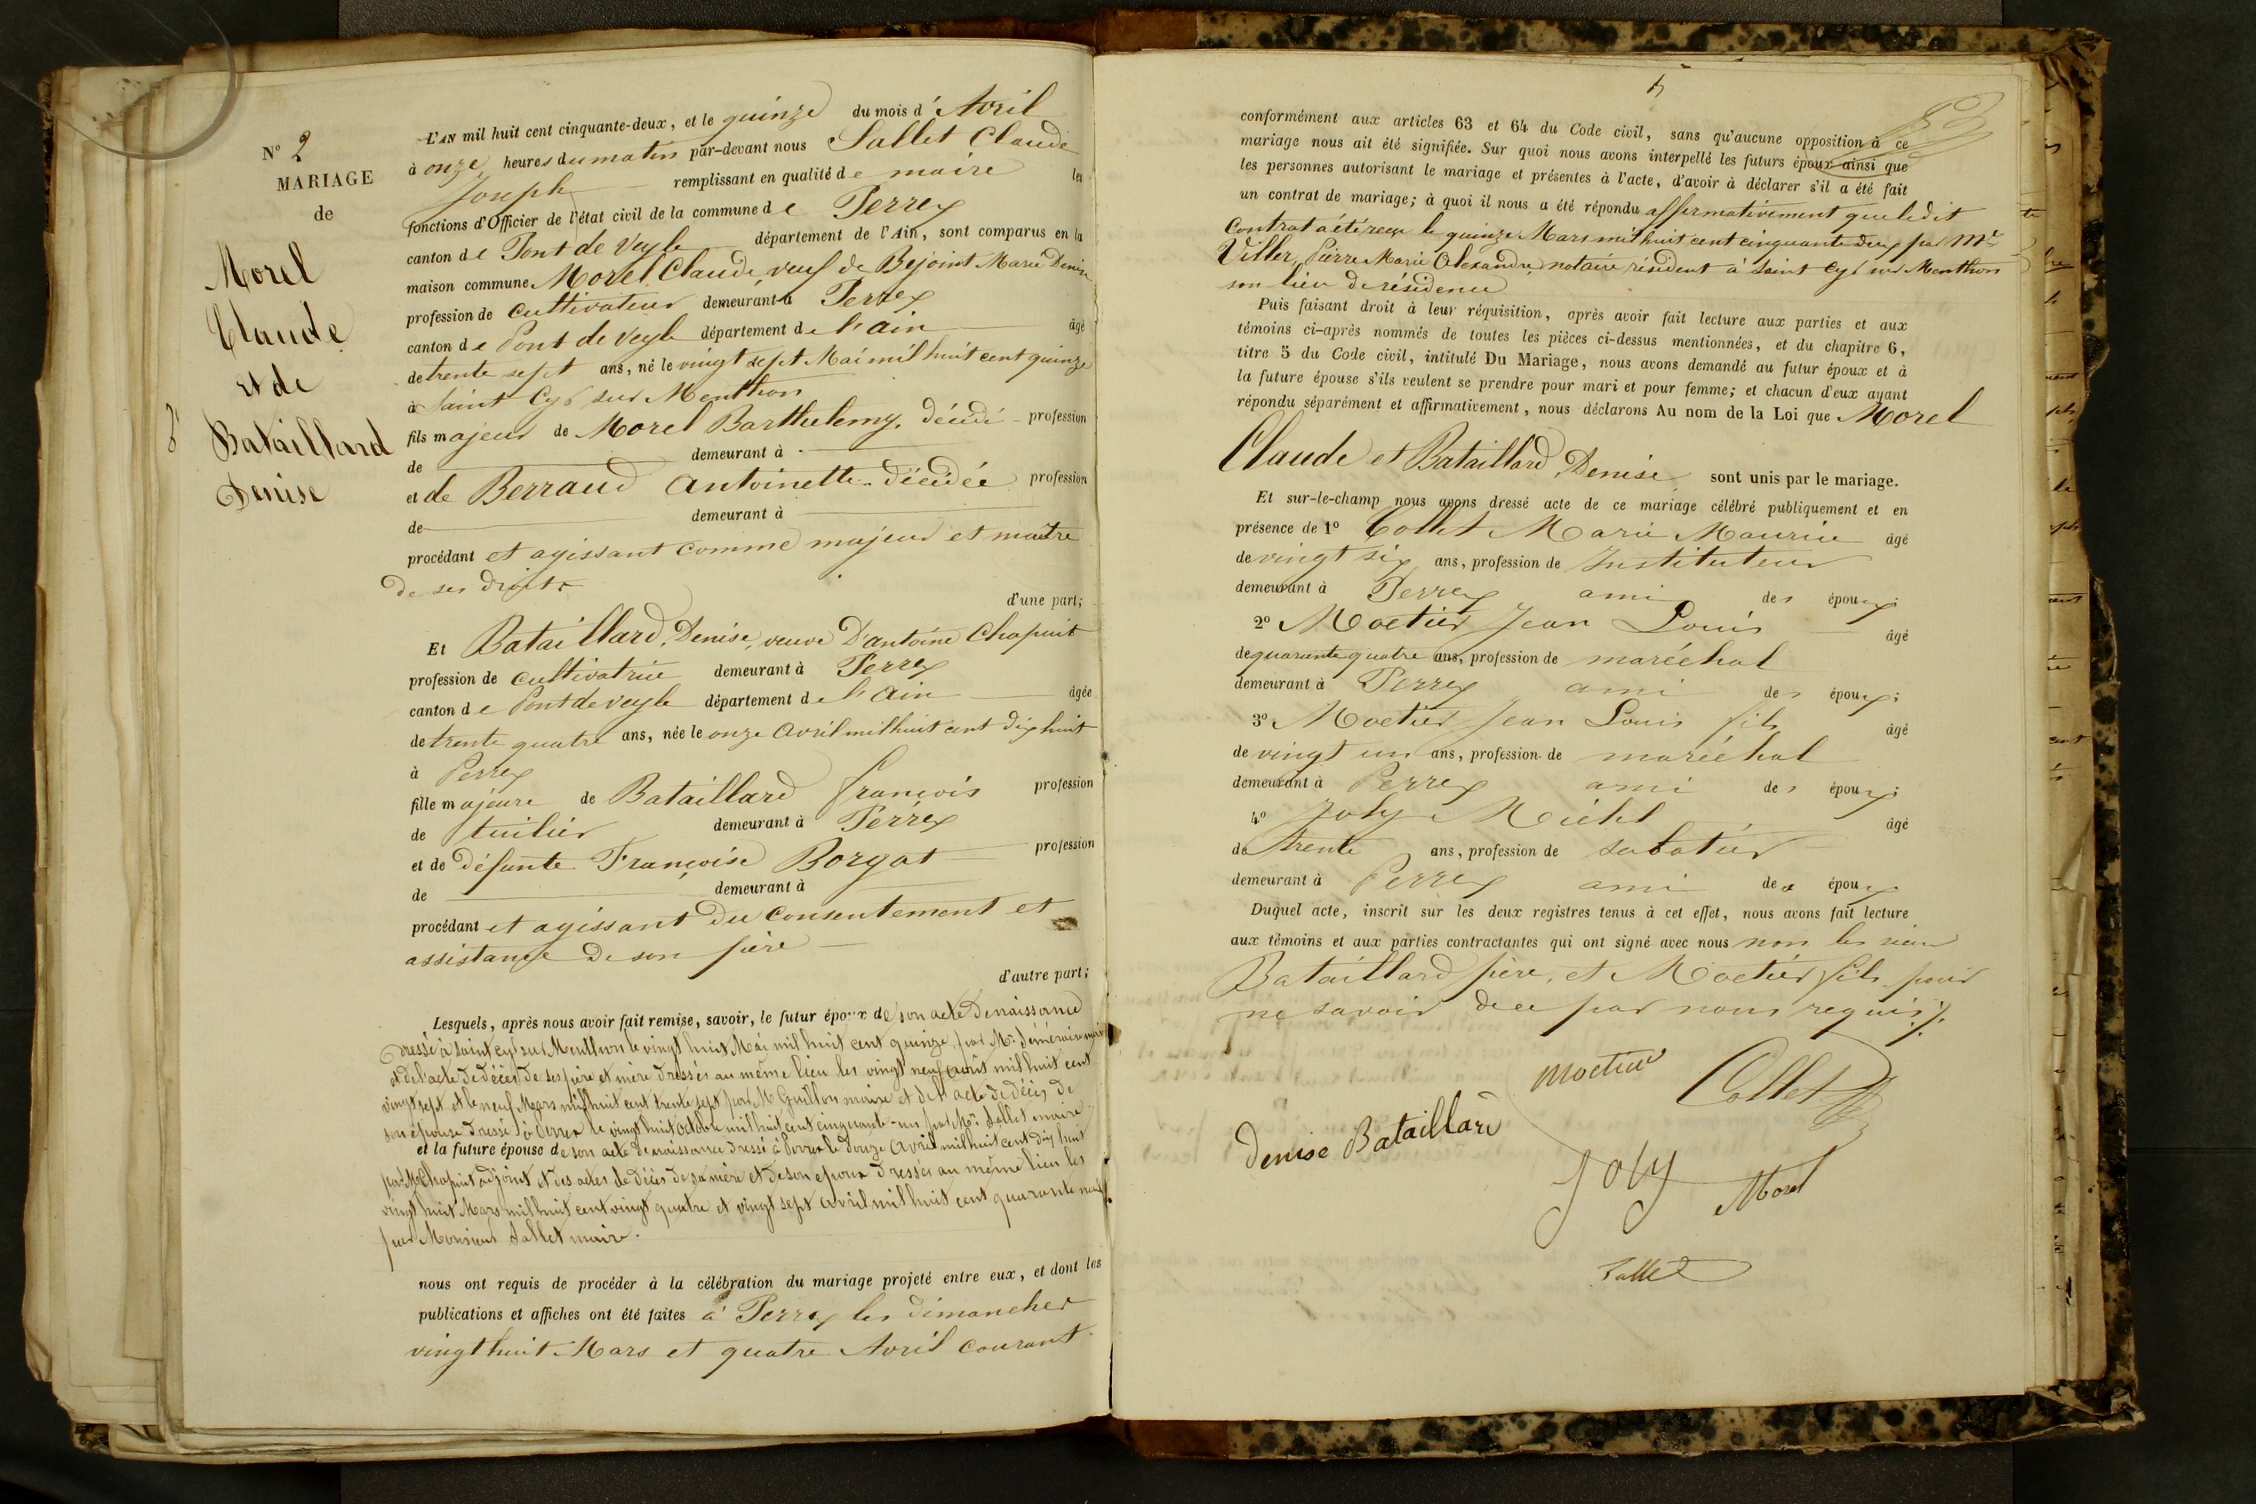 N° 2
MARIAGE
de
Morel
Claude
et de
Bataillard
Denise
L'AN mil huit cent cinquante-deux, et le quinze du mois d'Avril
à onze heures du matin par-devant nous Sallet Claude
Joseph remplissant en qualité de maire les
fonctions d'Officier de l'état civil de la commune de Perrex
canton de Pont de Veyle département de l'Ain, sont comparus en la
maison commune Morel, Claude, veuf de Bejoint Marie Denise
profession de cultivateur demeurant à Perrex
canton de Pont de Veyle département de l'Ain âgé
de trente sept ans, né le vingt sept Mai mil huit cent quinze
à Saint Cyr sur Menthon
fils majeur de Morel Barthelemy, décédé profession
de demeurant à
et de Berraud Antoinette décédée profession
de demeurant à
procédant et agissant comme majeur et maître
de ses droits
d'une part;
Et Bataillard, Denise, veuve D'antoine Chapuit
profession de cultivatrice demeurant à Perrex
canton de Pont de veyle département de l'Ain âgée
de trente quatre ans, née le onze Avril mil huit cent dix huit
à Perrex
fille majeure de Bataillard françois profession
de tuilier demeurant à Perrex
et de défunte Françoise Borgat profession
de demeurant à
procédant et agissant du consentement et
assistance de son père
d'autre part;
Lesquels, après nous avoir fait remise, savoir, le futur époux de son acte de naissance
dressé à Saint Cyr sur Menthon le vingt huit Mai mil huit cent quinze, par Mr
et de l'acte de décès de ses père et mère dressés au même lieu les vingt neuf août mil huit cent
vingt sept et le neuf Mars mil huit cent trente sept par Mr Guillon maire et de l'acte de décès de
son épouse dressé à Perrex le vingt huit octobre mil huit cent cinquante-un par Mr. Sallet maire
et la future épouse de son acte de naissance dressé à Perrex le douze Avril mil huit cent dix huit
par Mr Chapuit adjoint et des actes de décès de sa mère et de son epoux dressés au même lieu les
vingt huit Mars mil huit cent vingt quatre et vingt sept avril mil huit cent quarante neuf
par Monsieur Sallet maire.
nous ont requis de procéder à la célébration du mariage projeté entre eux, et dont les
publications et affiches ont été faites à Perrex les dimanches
vingt huit Mars et quatre Avril courant
conformément aux articles 63 et 64 du Code civil, sans qu'aucune opposition à ce
mariage nous ait été signifiée. Sur quoi nous avons interpellé les futurs époux ainsi que
les personnes autorisant le mariage et présentes à l'acte, d'avoir à déclarer s'il a été fait
un contrat de mariage; à quoi il nous a été répondu affirmativement que ledit
Contrat a été reçu le quinze Mars mil huit cent cinquante deux par Me
Viller, Pierre Marie Alexandre, notaire résident à Saint Cyr sur Menthon
son lieu de résidence
Puis faisant droit à leur réquisition, après avoir fait lecture aux parties et aux
témoins ci-après nommés de toutes les pièces ci-dessus mentionnées, et du chapitre 6,
titre 5 du Code civil, intitulé Du Mariage, nous avons demandé au futur époux et à
la future épouse s'ils veulent se prendre pour mari et pour femme; et chacun d'eux ayant
répondu séparément et affirmativement, nous déclarons Au nom de la Loi que Morel
Claude et Bataillard, Denise sont unis par le mariage.
Et sur-le-champ nous avons dressé acte de ce mariage célébré publiquement et en
présence de 1° Collet Marie Maurice âgé
de vingt six ans, profession de Instituteur
demeurant à Perrex ami des époux;
2° Moetier Jean Louis âgé
de quarante quatre ans, profession de maréchal
demeurant à Perrex ami des époux;
3° Moetier Jean Louis fils âgé
de vingt un ans, profession de maréchal
demeurant à Perrex ami des époux;
4° Joly Michel âgé
de trente ans, profession de sabotier
demeurant à Perrex ami des époux
Duquel acte, inscrit sur les deux registres tenus à cet effet, nous avons fait lecture
aux témoins et aux parties contractantes qui ont signé avec nous non les sieurs
Bataillard père, et Moetier fils pour
ne savoir de ce par nous requis
Moetier
Collet
Denise Bataillard
Joly
Morel
Sallet